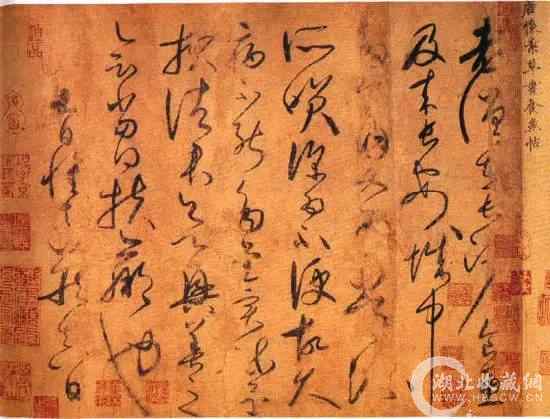 唐懷素草書食魚帖
老僧在長沙食魚
及來長安城中多
食肉又為常流
所笑深為不便故久
病不能多書實疏
還報諸君欲興善之
會當得扶羸也
九日懷素藏真白
湖北收藏網